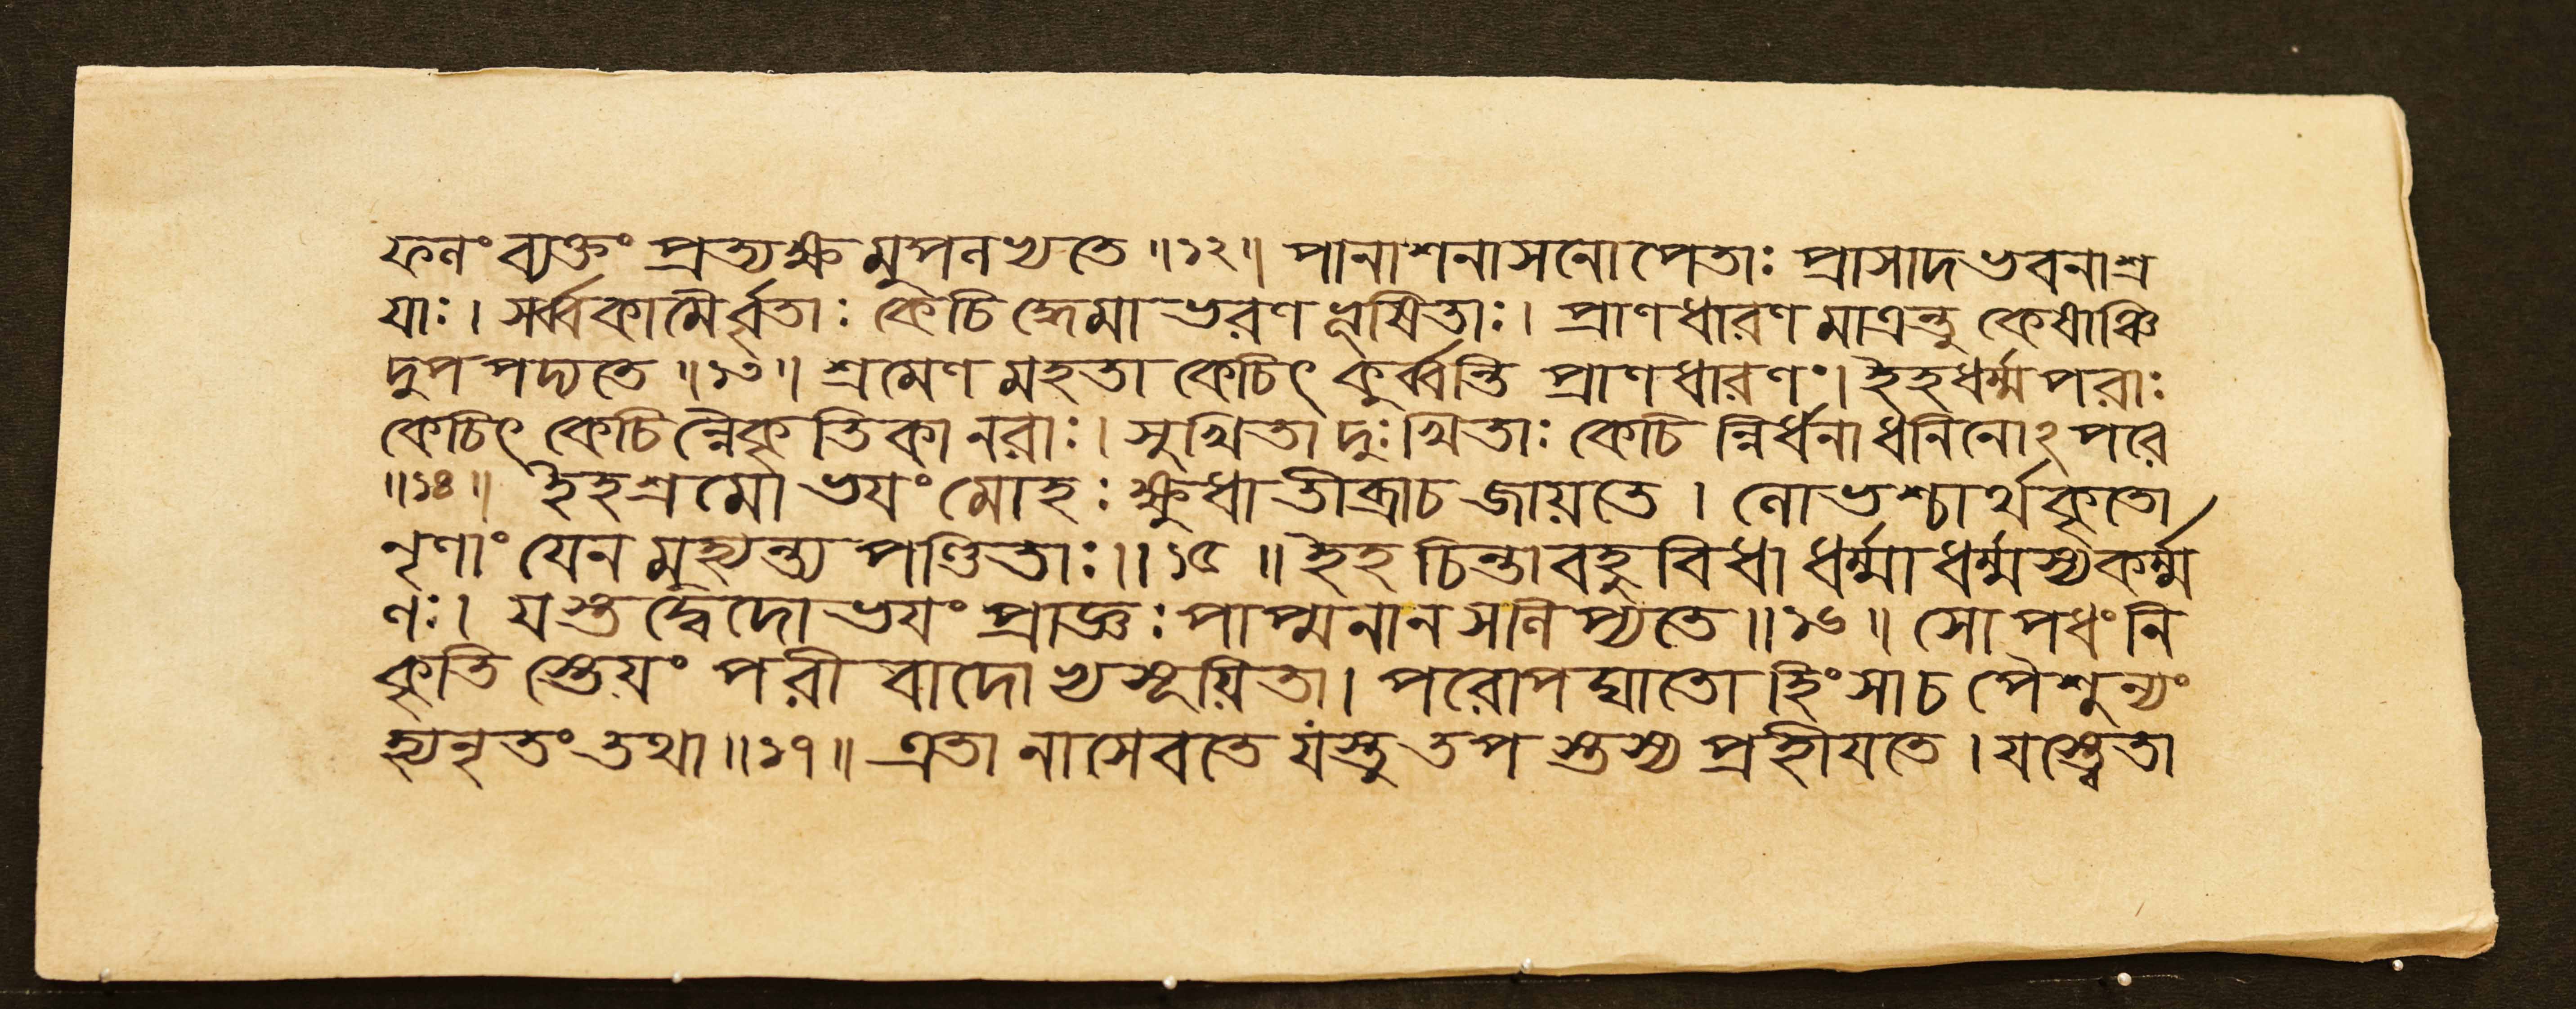 ফলং ব্যক্তং প্রত্যক্ষমুপলভ্যতে ॥১২॥ পানাশনাসনোপেতাঃ প্রাসাদভবনাশ্র
যাঃ। সর্ব্বকামৈর্বৃতাঃ কেচিদ্ধেমাভরণভূষিতাঃ। প্রাণধারণমাত্রন্তু কেষাঞ্চি
দুপপদ্যতে ॥১৩॥ শ্রমেণ মহতা কেচিৎ কুর্ব্বন্তি প্রাণধারণং। ইহ ধর্ম্মপরাঃ
কেচিৎ কেচিন্নৈকৃতিকা নরাঃ। সুখিতা দুঃখিতাঃ কেচিন্নির্ধনা ধনিনোঽপরে
॥১৪॥ ইহ শ্রমো ভযং মোহঃ ক্ষুধা তীব্রা চ জায়তে । লোভশ্চার্থকৃতো
নৃণাং যেন মুহ্যন্ত্যপণ্ডিতাঃ॥ ১৫ ॥ ইহ চিন্তা বহুবিধা ধর্ম্মাধর্ম্মস্য কর্ম্ম
ণঃ। যস্তদ্বেদোভযং প্রাজ্ঞঃ পাপ্মনা ন স লিপ্যতে ॥১৬॥ সোপধং নি
কৃতি স্তেয়ং পরীবাদোভ্যসূয়িতা। পরোপঘাতো হিংসা চ পৈশুন্যং
হ্যনৃতং তথা ॥১৭॥ এতানাসেবতে যস্তু তপস্তস্য প্রহীযতে । যস্ত্বেতা